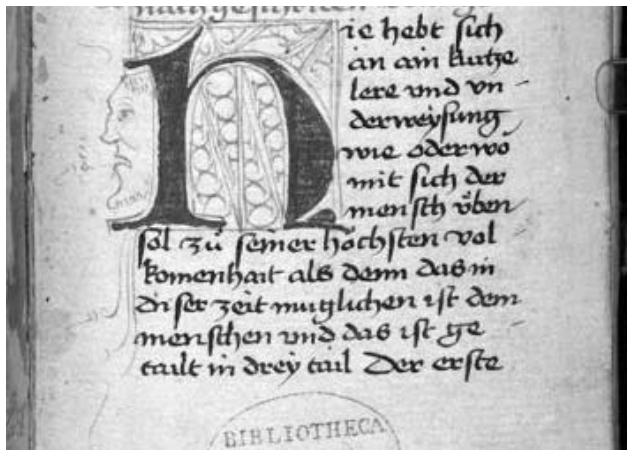 nachgeschriben
Hie hebt sich
an ain kurtze
lere vnd vn
derweysung
wie oder wo
mit sich der
mensch vͤben
sol zů seiner höchsten vol
komenhait als denn das in
diser zeit muglichen ist dem
menschen vnd das ist ge
tailt in drey tail Der erste
BIBLIOTHECA